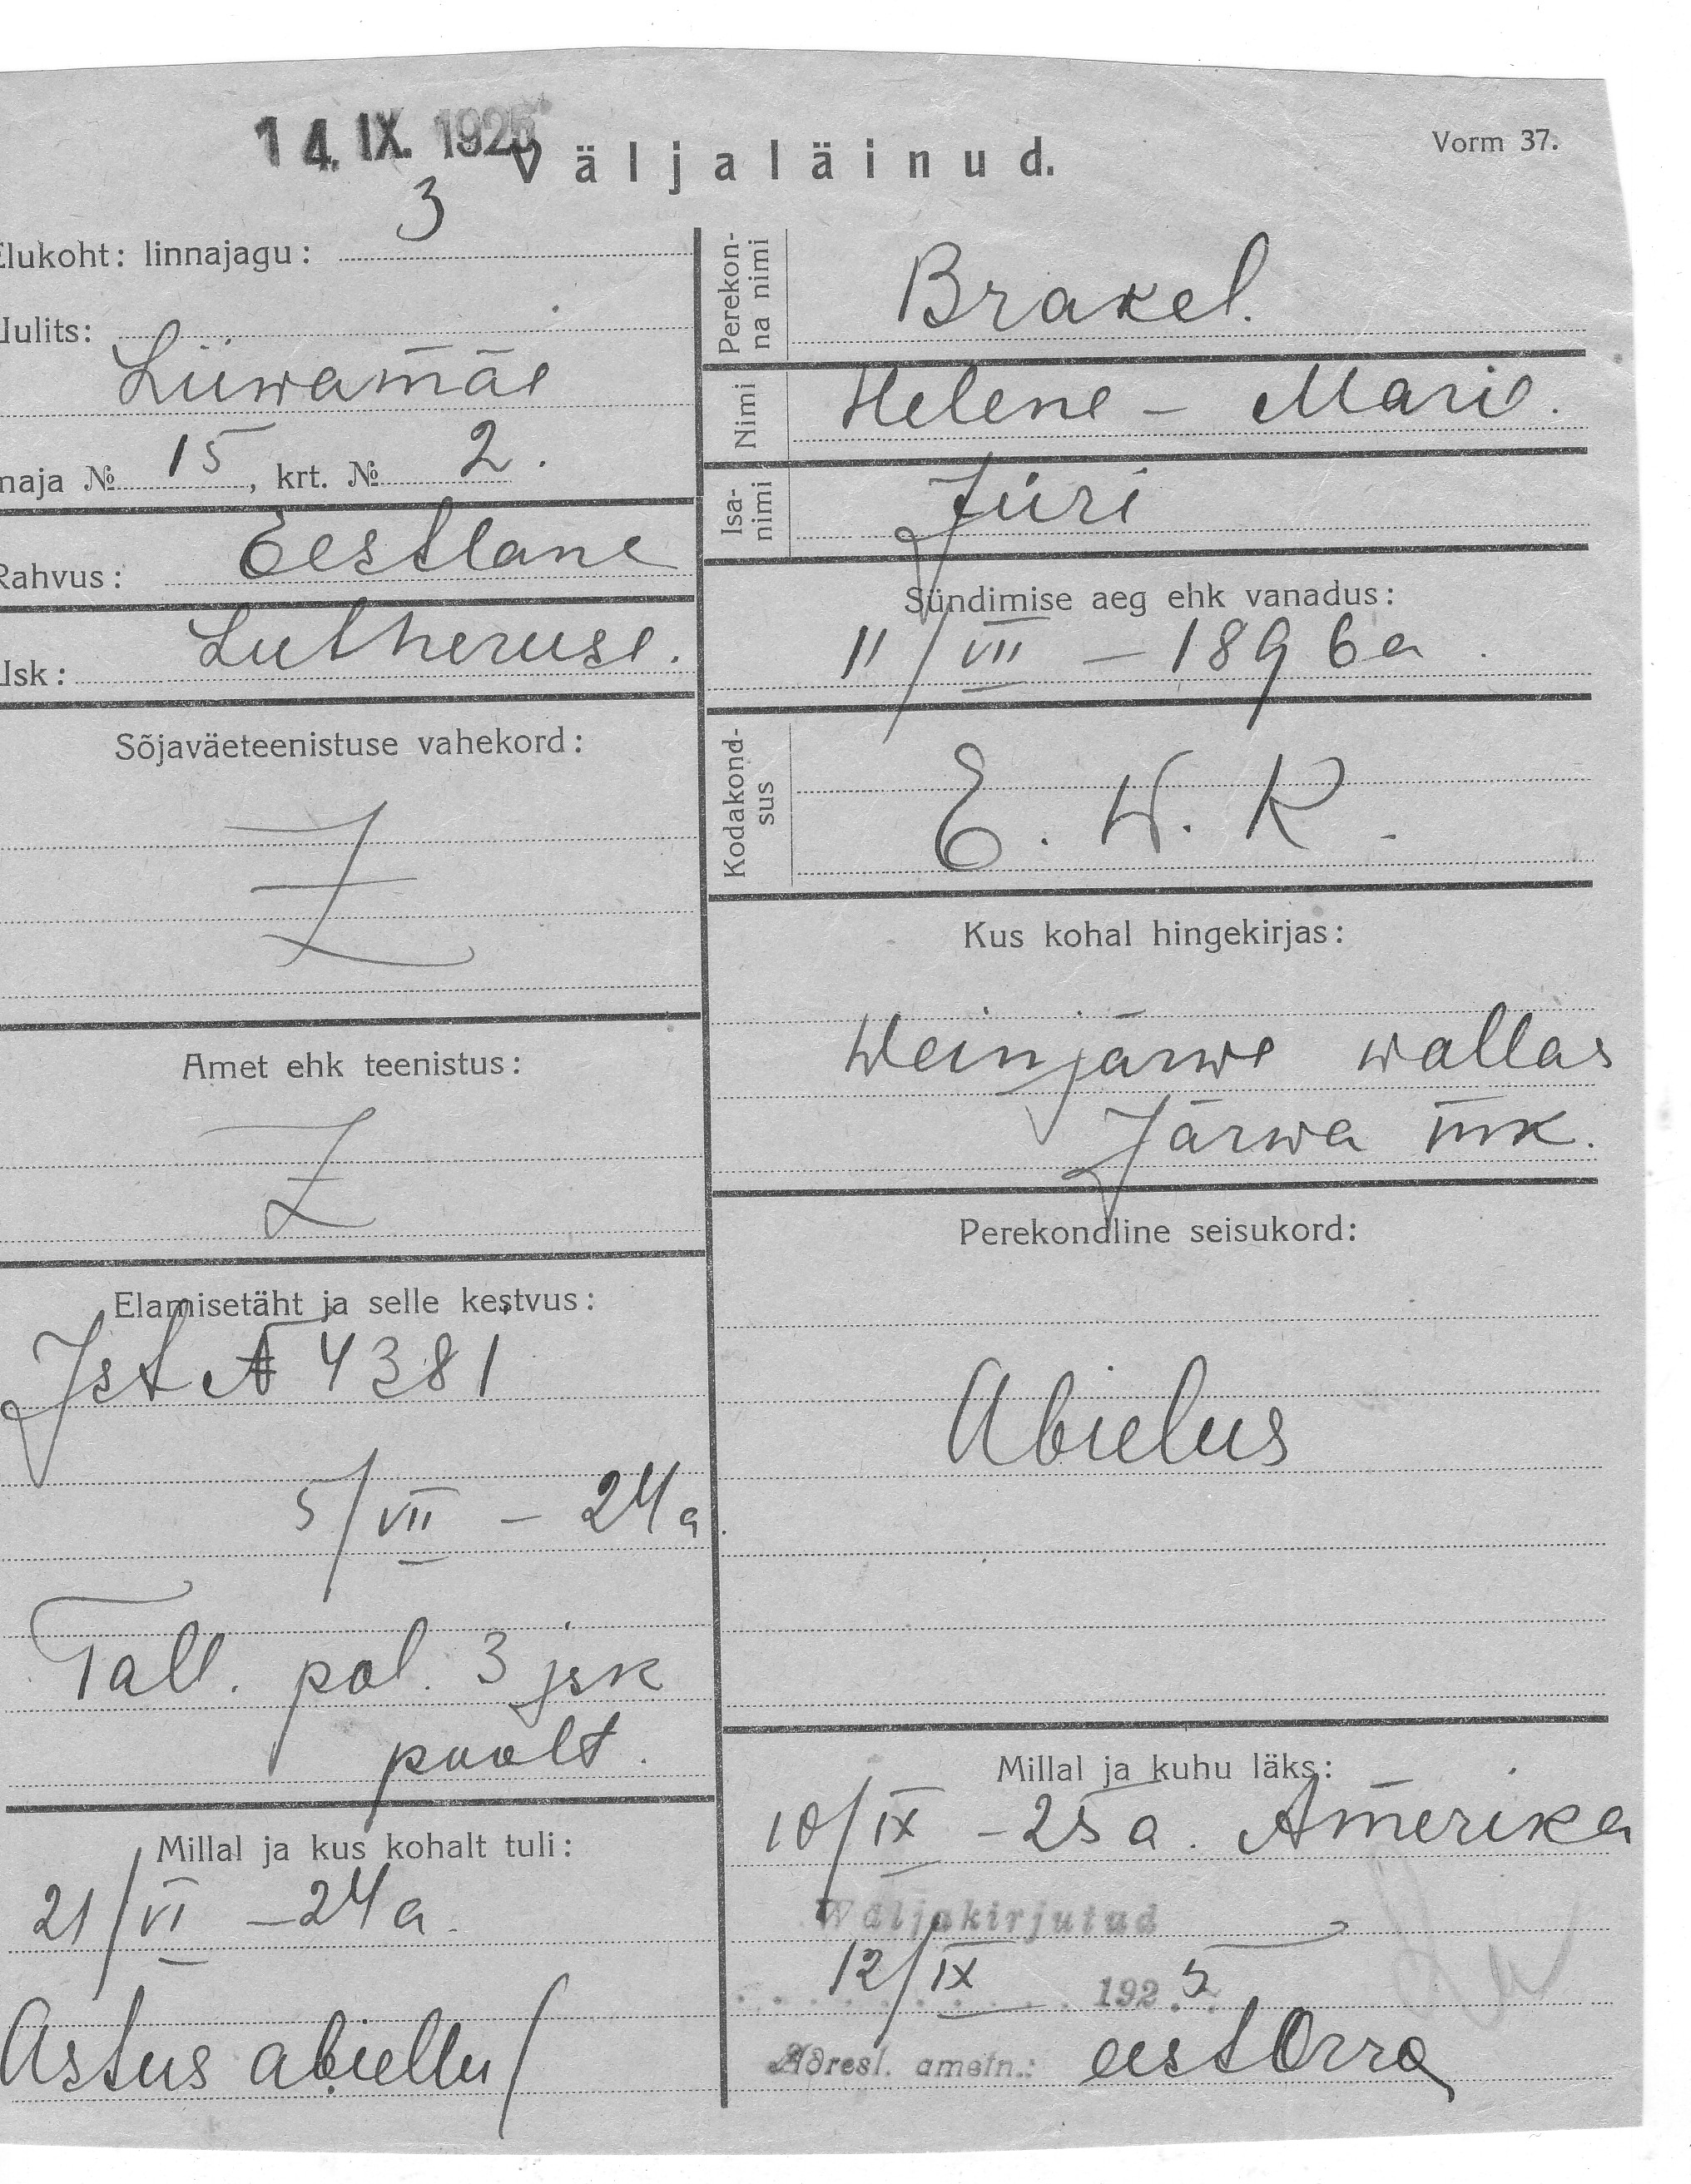 14. IX. 1925
Väljaläinud.
Vorm 37.
Elukoht: linnajagu: 3
Uulits:
Liiwamäe
maja № 15, krt. № 2.
Rahvus: Eestlane
Usk: Lutheruse.
Sõjaväeteenistuse vahekord:
Z
Amet ehk teenistus:
Z
Elamisetäht ja selle kestvus:
Ist № 4381
5/VII – 24 a.
Tall. pol. 3 jsk
poolt.
Millal ja kus kohalt tuli:
21/VI – 24 a.
Astus abiellu/
Perekon-
na nimi
Brakel.
Nimi
Helene – Marie.
Isa-
nimi
Jüri
Sündimise aeg ehk vanadus:
11/VII – 1896 a.
Kodakond-
sus
E. W. R.
Kus kohal hingekirjas:
Weinjärwe wallas
Järwa mk.
Perekondline seisukord:
Abielus
Millal ja kuhu läks:
10/IX – 25 a. Amerika
Wäljakirjutud
12/IX 1925
Adresl. ametn.: